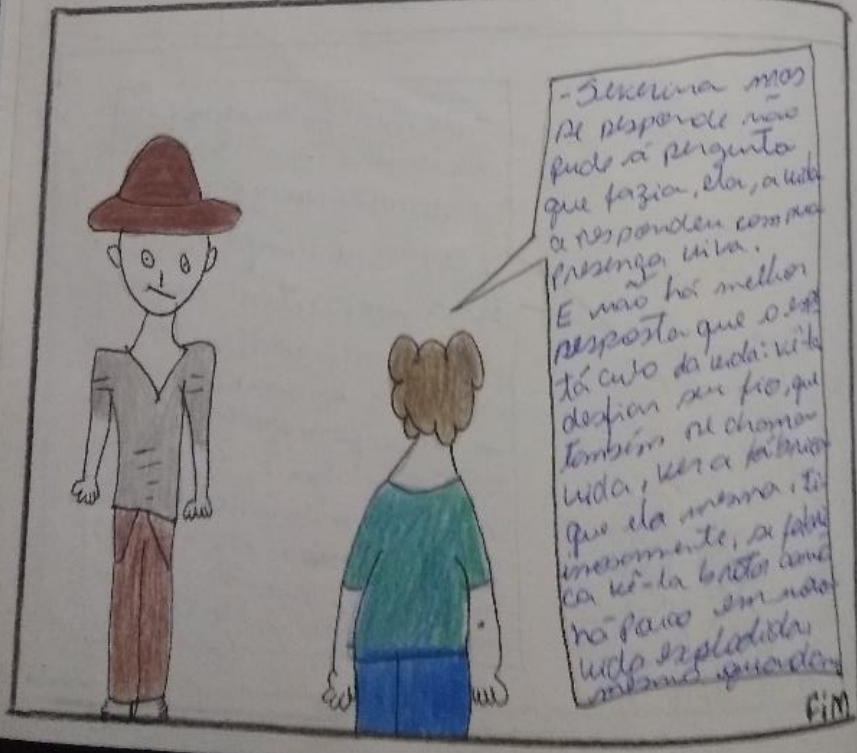 - Severina mas
se responde não
pude á pergunta
que fazia, ela, a vida
a respondeu com sua
presença viva.
E não há melhor
resposta que o esp
tá culo da vida: vê-la
desfiar seu fio, que
também se chama
vida, ver a fábrica
que ela mesma, tei
mosamente, se fabri
ca vê-la brotar como
há pouco em nova
vida explodida,
mesmo quando
FIM